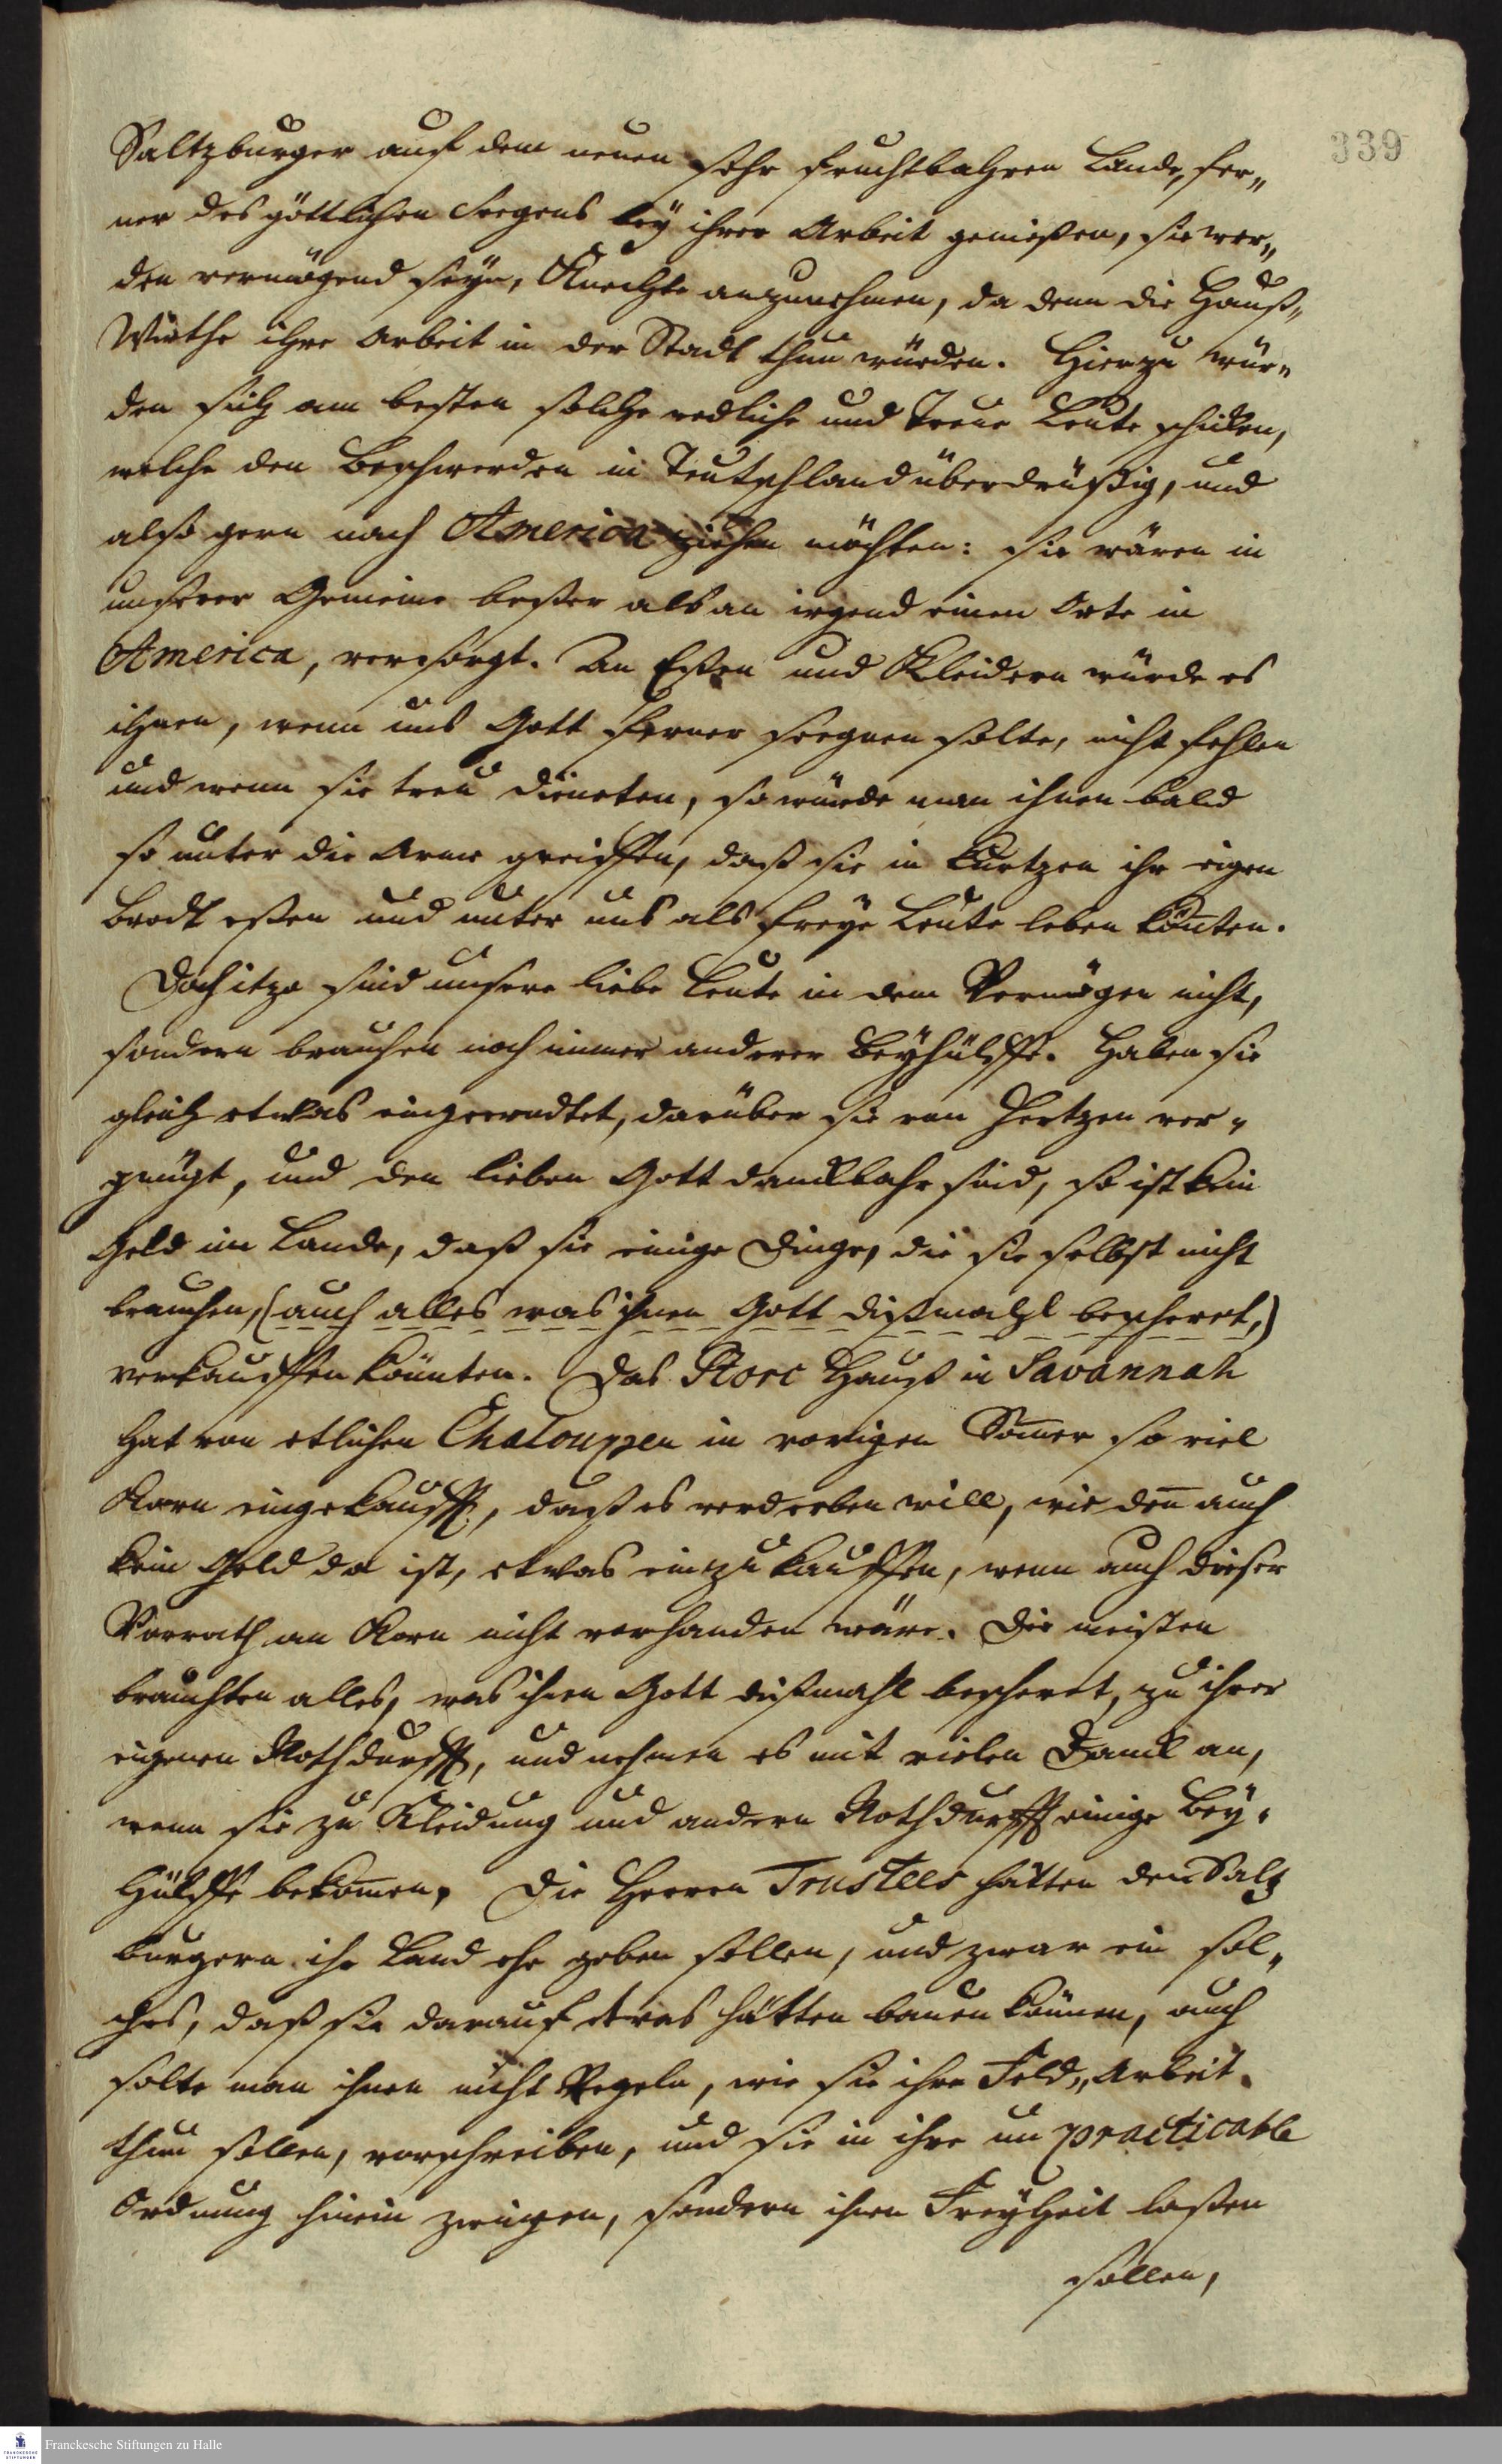 339
Saltzburger auf dem neuen sehr fruchtbahren Lande, fer„
ner des göttlichen Seegens beÿ ihrer Arbeit genießen, sie wer„
den vermögend seÿn, Knechte anzunehmen, da denn die Hauß„
Wirthe ihre Arbeit in der Stadt thun würden. Hierzu wür„
den sich am besten solche redliche und treue Leute schicken,
welche den Beschwerden in Teutschland überdrüßig, und
also gern nach America ziehen möchten: sie wären in
unserer Gemeine beßer als an irgend einen Orte in
America, versorgt. An Eßen und Kleidern würde es
ihnen, wenn uns Gott ferner seegnen solte, nicht fehlen
und wenn sie treu dieneten, so würde man ihnen bald
so unter die Arme greiffen, daß sie in kurtzen ihr eigen
Brodt eßen und unter uns als freÿe Leute leben kön̄ten.
Doch itzo sind unsere liebe Leute in dem Vermögen nicht,
sondern brauchen noch immer anderer Beÿhülffe. Haben sie
gleich etwas eingeerndtet, darüber sie von Hertzen ver„
gnügt, und den lieben Gott danckbahr sind, so ist kein
Geld im Lande, daß sie einige Dinge, die sie selbst nicht
brauchen, (auch alles was ihnen Gott dißmahl bescheret,)
verkauffen könnten. Das Store Hauß in Savannah
hat von etlichen Chalouppen in vorigen Som̄er so viel
Korn eingekaufft, daß es verderben will, wie den̄ auch
kein Geld da ist, etwas einzukauffen, wenn auch dieser
Vorrath an Korn nicht vorhanden wäre. Die meisten
brauchten alles, was ihnen Gott dißmahl bescheret, zu ihrer
eigenen Nothdurfft, und nehmen es mit vielen Danck an,
wenn sie zu Kleidung und andern Nothdurfft einige Beÿ„
hülffe bekom̄en. Die Herren Trustees hätten den Saltz
burgern ihr Land ehe geben sollen, und zwar ein sol„
ches, daß sie darauf etwas hätten bauen können, auch
solte man ihnen nicht Regeln, wie sie ihre Feld„Arbeit
thun sollen, vorschreiben, und sie in ihre un practicable
Ordnung hinein zwingen, sondern ihnen Freÿheit laßen
sollen,
Franckesche Stiftungen zu Halle
FRANCKESCHE
STIFTUNGEN